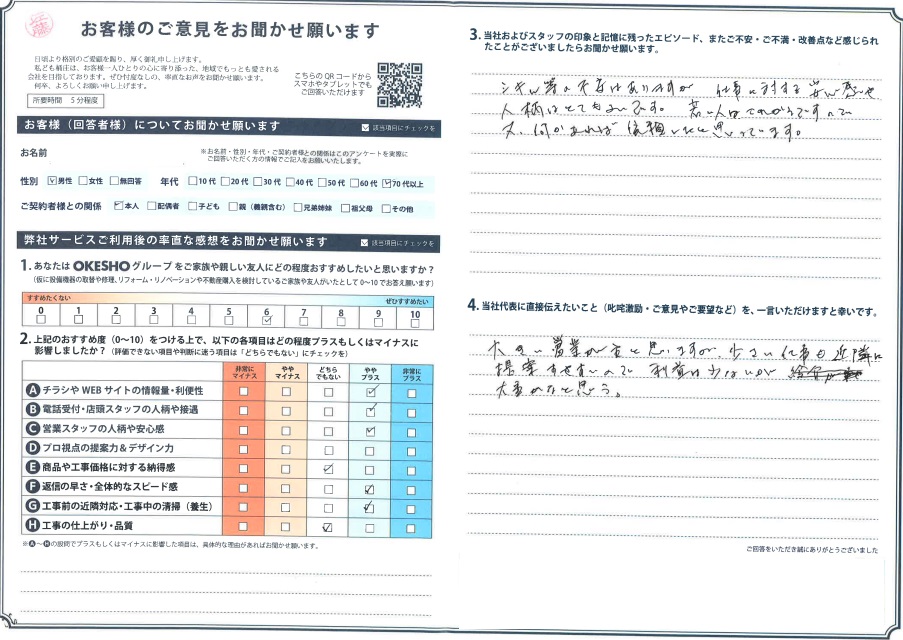 お客様のご意見をお聞かせ願います
日頃より格別のご愛顧を賜り、厚く御礼申し上げます。
私ども桶庄は、お客様一人ひとりの心に寄り添った、地域でもっとも愛される
会社を目指しております。ぜひ忖度なしの、率直なお声をお聞かせ願います。
何卒、よろしくお願い申し上げます。
所要時間 5分程度
こちらのQRコードから
スマホやタブレットでも
ご回答いただけます
お客様（回答者様）についてお聞かせ願います
該当項目にチェックを
お名前
※お名前・性別・年代・ご契約者様との関係はこのアンケートを実際に
ご回答いただく方の情報でご記入をお願いいたします。
性別 男性 女性 無回答 年代 10代 20代 30代 40代 50代 60代 70代以上
ご契約者様との関係 本人 配偶者 子ども 親（義親含む） 兄弟姉妹 祖父母 その他
弊社サービスご利用後の率直な感想をお聞かせ願います
該当項目にチェックを
1. あなたは OKESHO グループ をご家族や親しい友人にどの程度おすすめしたいと思いますか？
（仮に設備機器の取替や修理、リフォーム・リノベーションや不動産購入を検討しているご家族や友人がいたとして0〜10でお答え願います）
すすめたくない ぜひすすめたい
0 1 2 3 4 5 6 7 8 9 10
2. 上記のおすすめ度（0〜10）をつける上で、以下の各項目はどの程度プラスもしくはマイナスに
影響しましたか？（評価できない項目や判断に迷う項目は「どちらでもない」にチェックを）
非常に
マイナス
やや
マイナス
どちら
でもない
やや
プラス
非常に
プラス
A チラシや WEB サイトの情報量・利便性
B 電話受付・店頭スタッフの人柄や接遇
C 営業スタッフの人柄や安心感
D プロ視点の提案力＆デザイン力
E 商品や工事価格に対する納得感
F 返信の早さ・全体的なスピード感
G 工事前の近隣対応・工事中の清掃（養生）
H 工事の仕上がり・品質
※A〜Hの設問でプラスもしくはマイナスに影響した項目は、具体的な理由があればお聞かせ願います。
3. 当社およびスタッフの印象と記憶に残ったエピソード、またご不安・ご不満・改善点など感じられ
たことがございましたらお聞かせ願います。
不安はありますが 仕事に対する
人柄はとても良いです。 若い人は
又、何かあれば 依頼したいと思っています。
4. 当社代表に直接伝えたいこと（叱咤激励・ご意見やご要望など）を、一言いただけますと幸いです。
大きい営業が主と思いますが、小さい仕事も近隣に
大事かなと思う。
ご回答をいただき誠にありがとうございました